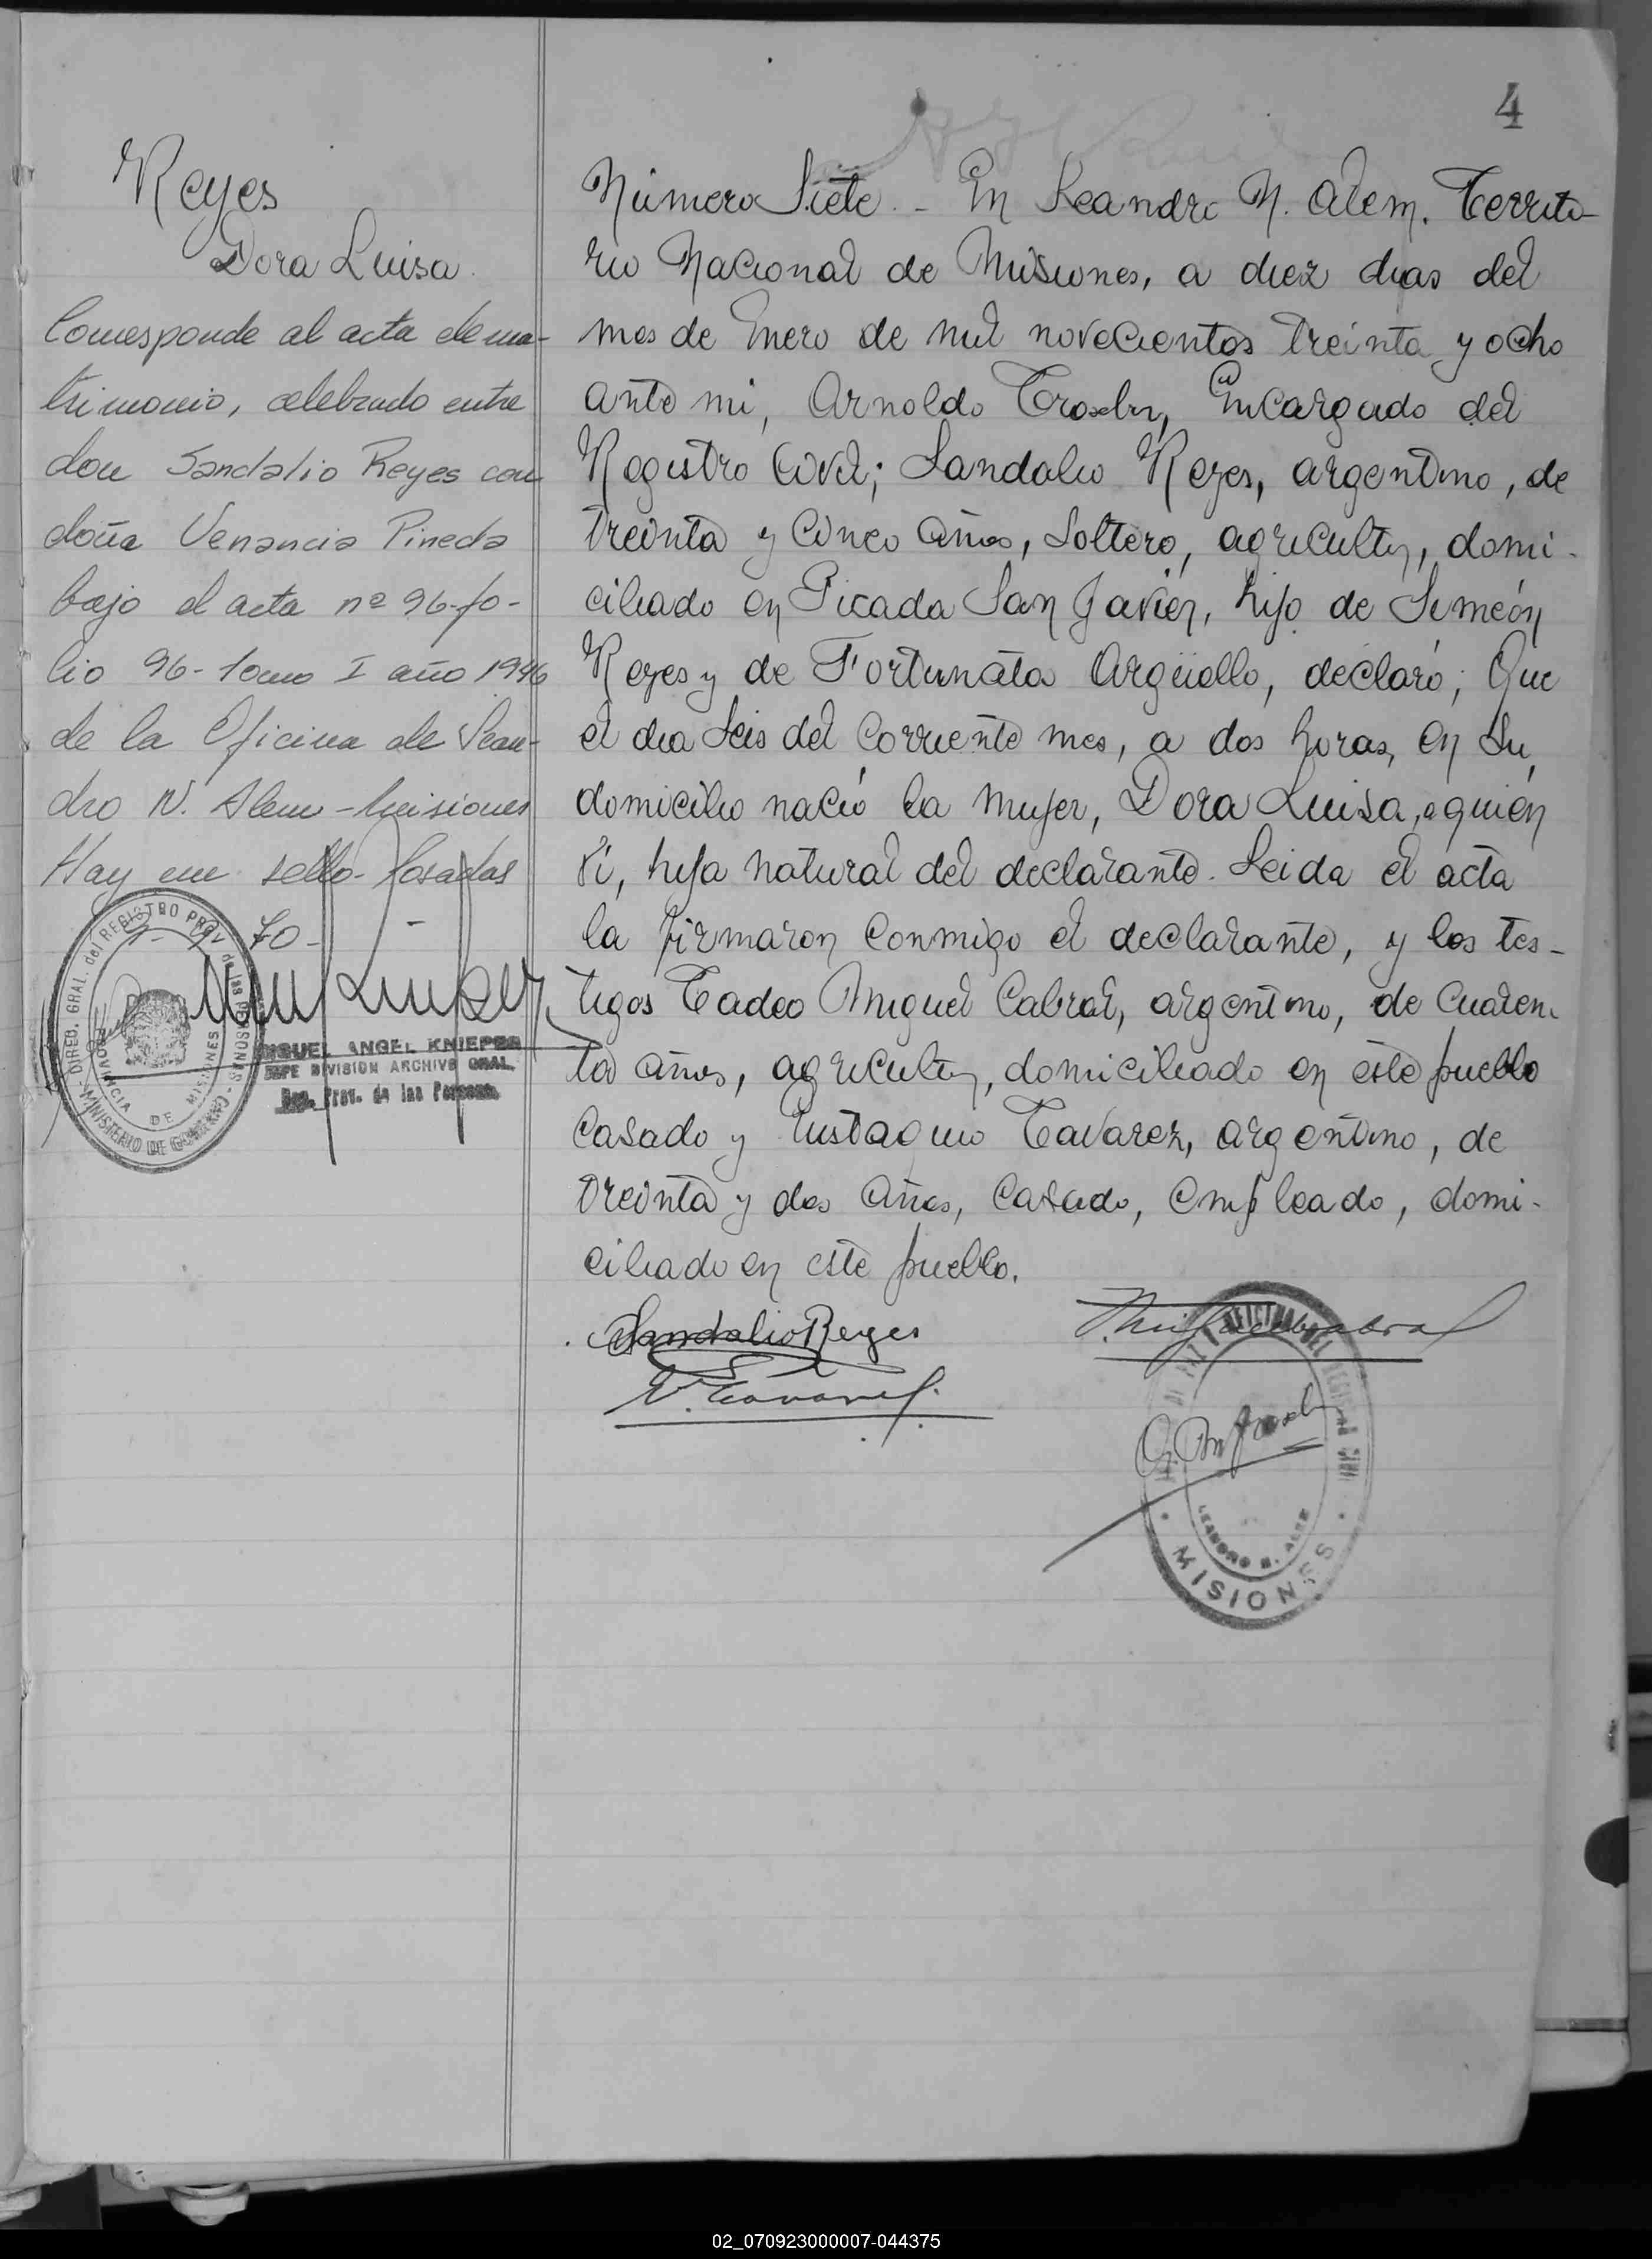 4
Reyes
Dora Luisa.
Corresponde al acta de ma-
trimonio, celebrado entre
don Sandalio Reyes con
doña Venancia Pineda
bajo el acta nº 96-fo-
lio 96- tomo I año 1946
de la Oficina de Lean-
dro N. Alem - Misiones
Hay un sello. Posadas
70-
DIREC. GRAL. del REGISTRO PROV. de las PERSONAS - MINISTERIO DE GOBIERNO
PROVINCIA DE MISIONES
MIGUEL ANGEL KNIEPER
JEFE DIVISION ARCHIVO GRAL.
Reg. Prov. de las Personas
Número Siete. - En Leandro N. Alem. Territo-
rio Nacional de Misiones, a diez dias del
mes de Enero de mil novecientos treinta y ocho
ante mi, Arnoldo Encargado del
Registro Civil; Sandalio Reyes, argentino, de
treinta y cinco años, soltero, agricultor, domi-
ciliado en Picada San Javier, hijo de Simeón
Reyes y de Fortunata Argüello, declaró; Que
el dia seis del corriente mes, a dos horas, en su
domicilio nació la mujer, Dora Luisa, a quién
ví, hija natural del declarante. Leida el acta
la firmaron conmigo el declarante, y los tes-
tigos Tadeo Miguel Cabral, argentino, de cuaren-
ta años, agricultor, domiciliado en este pueblo
casado y Eustaquio Tavarez, argentino, de
treinta y dos años, casado, empleado, domi-
ciliado en este pueblo.
Sandalio Reyes
T. Miguel Cabral
E. Tavarez
LEANDRO N. ALEM
MISIONES
02_070923000007-044375